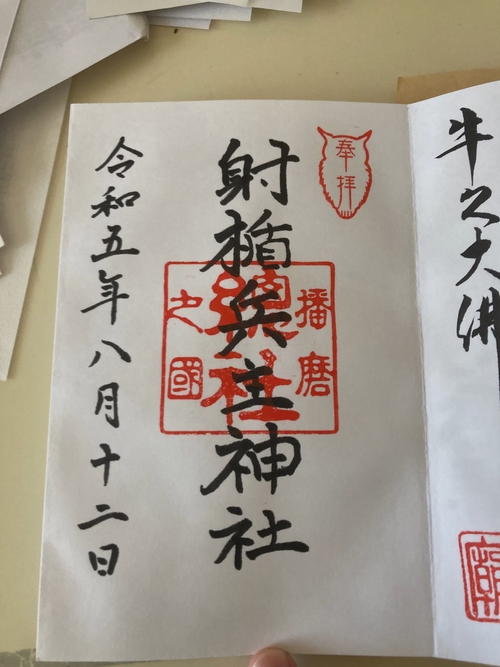 牛久大佛
奉拝
射楯兵主神社
播磨
總社
之國
令和五年八月十二日